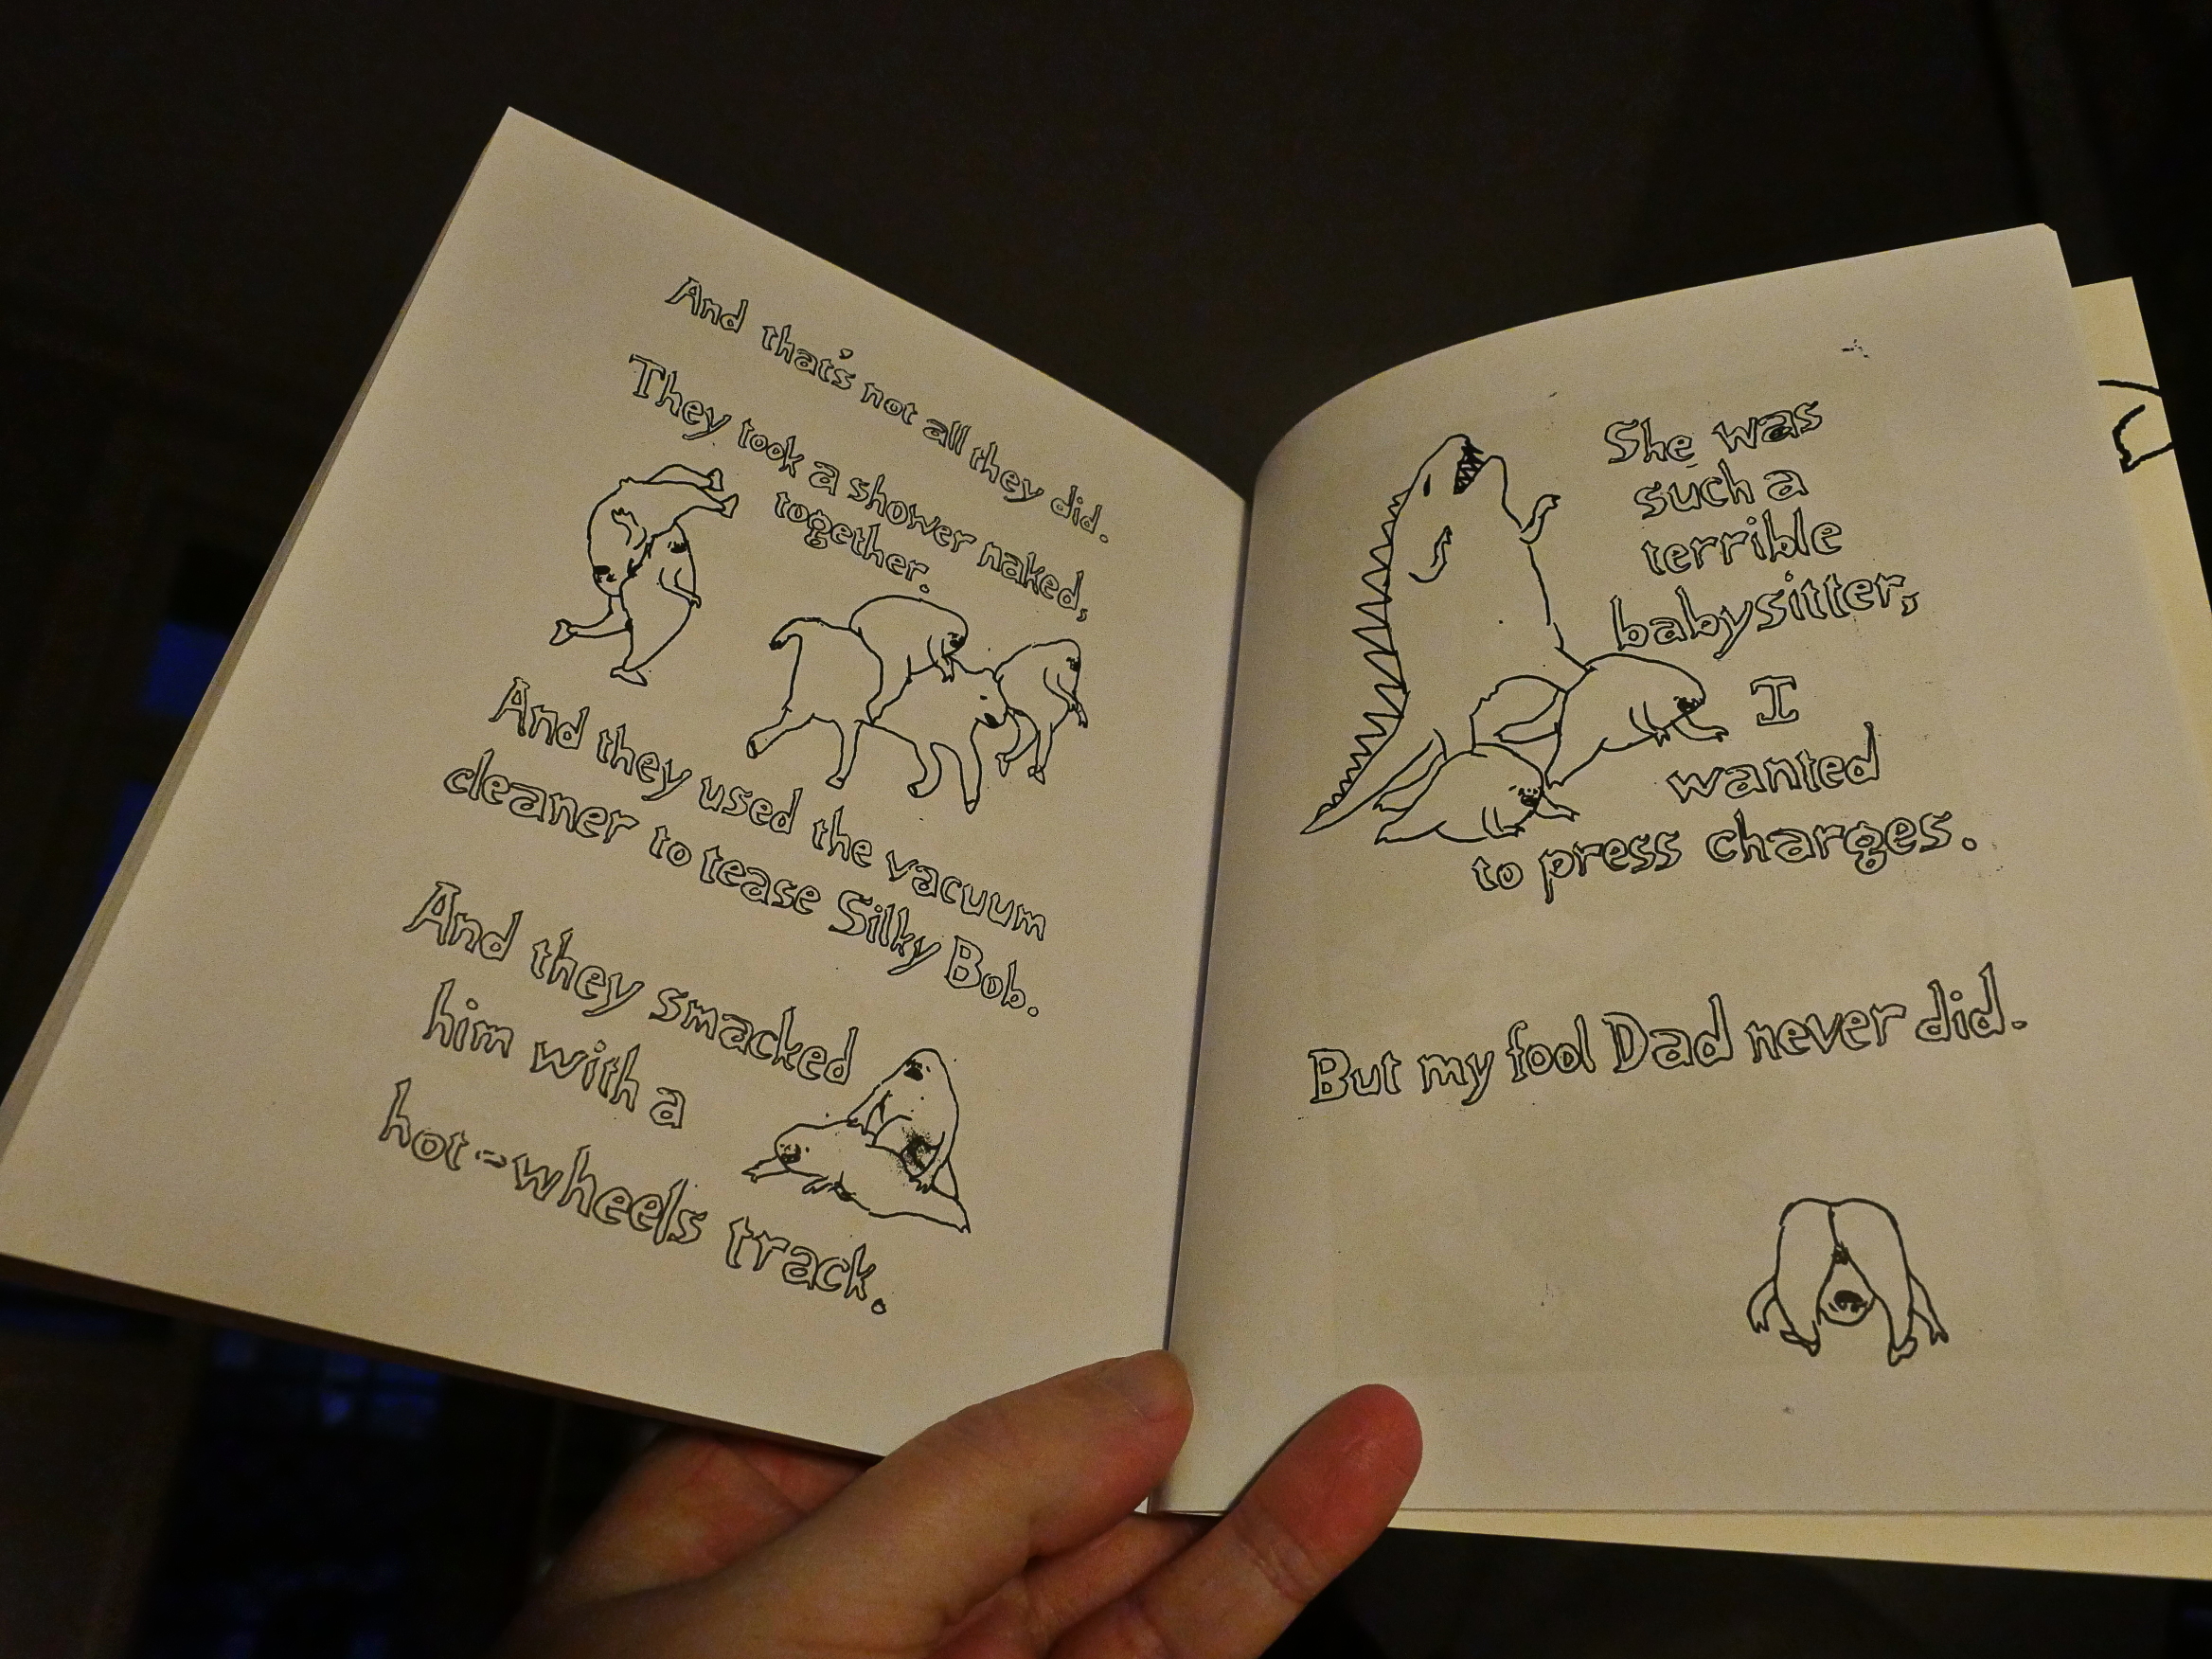 And that's not all they did.
They took a shower naked,
together.
And they used the vacuum
cleaner to tease Silky Bob.
And they smacked
him with a
hot-wheels track.
She was
such a
terrible
babysitter,
I
wanted
to press charges.
But my fool Dad never did.